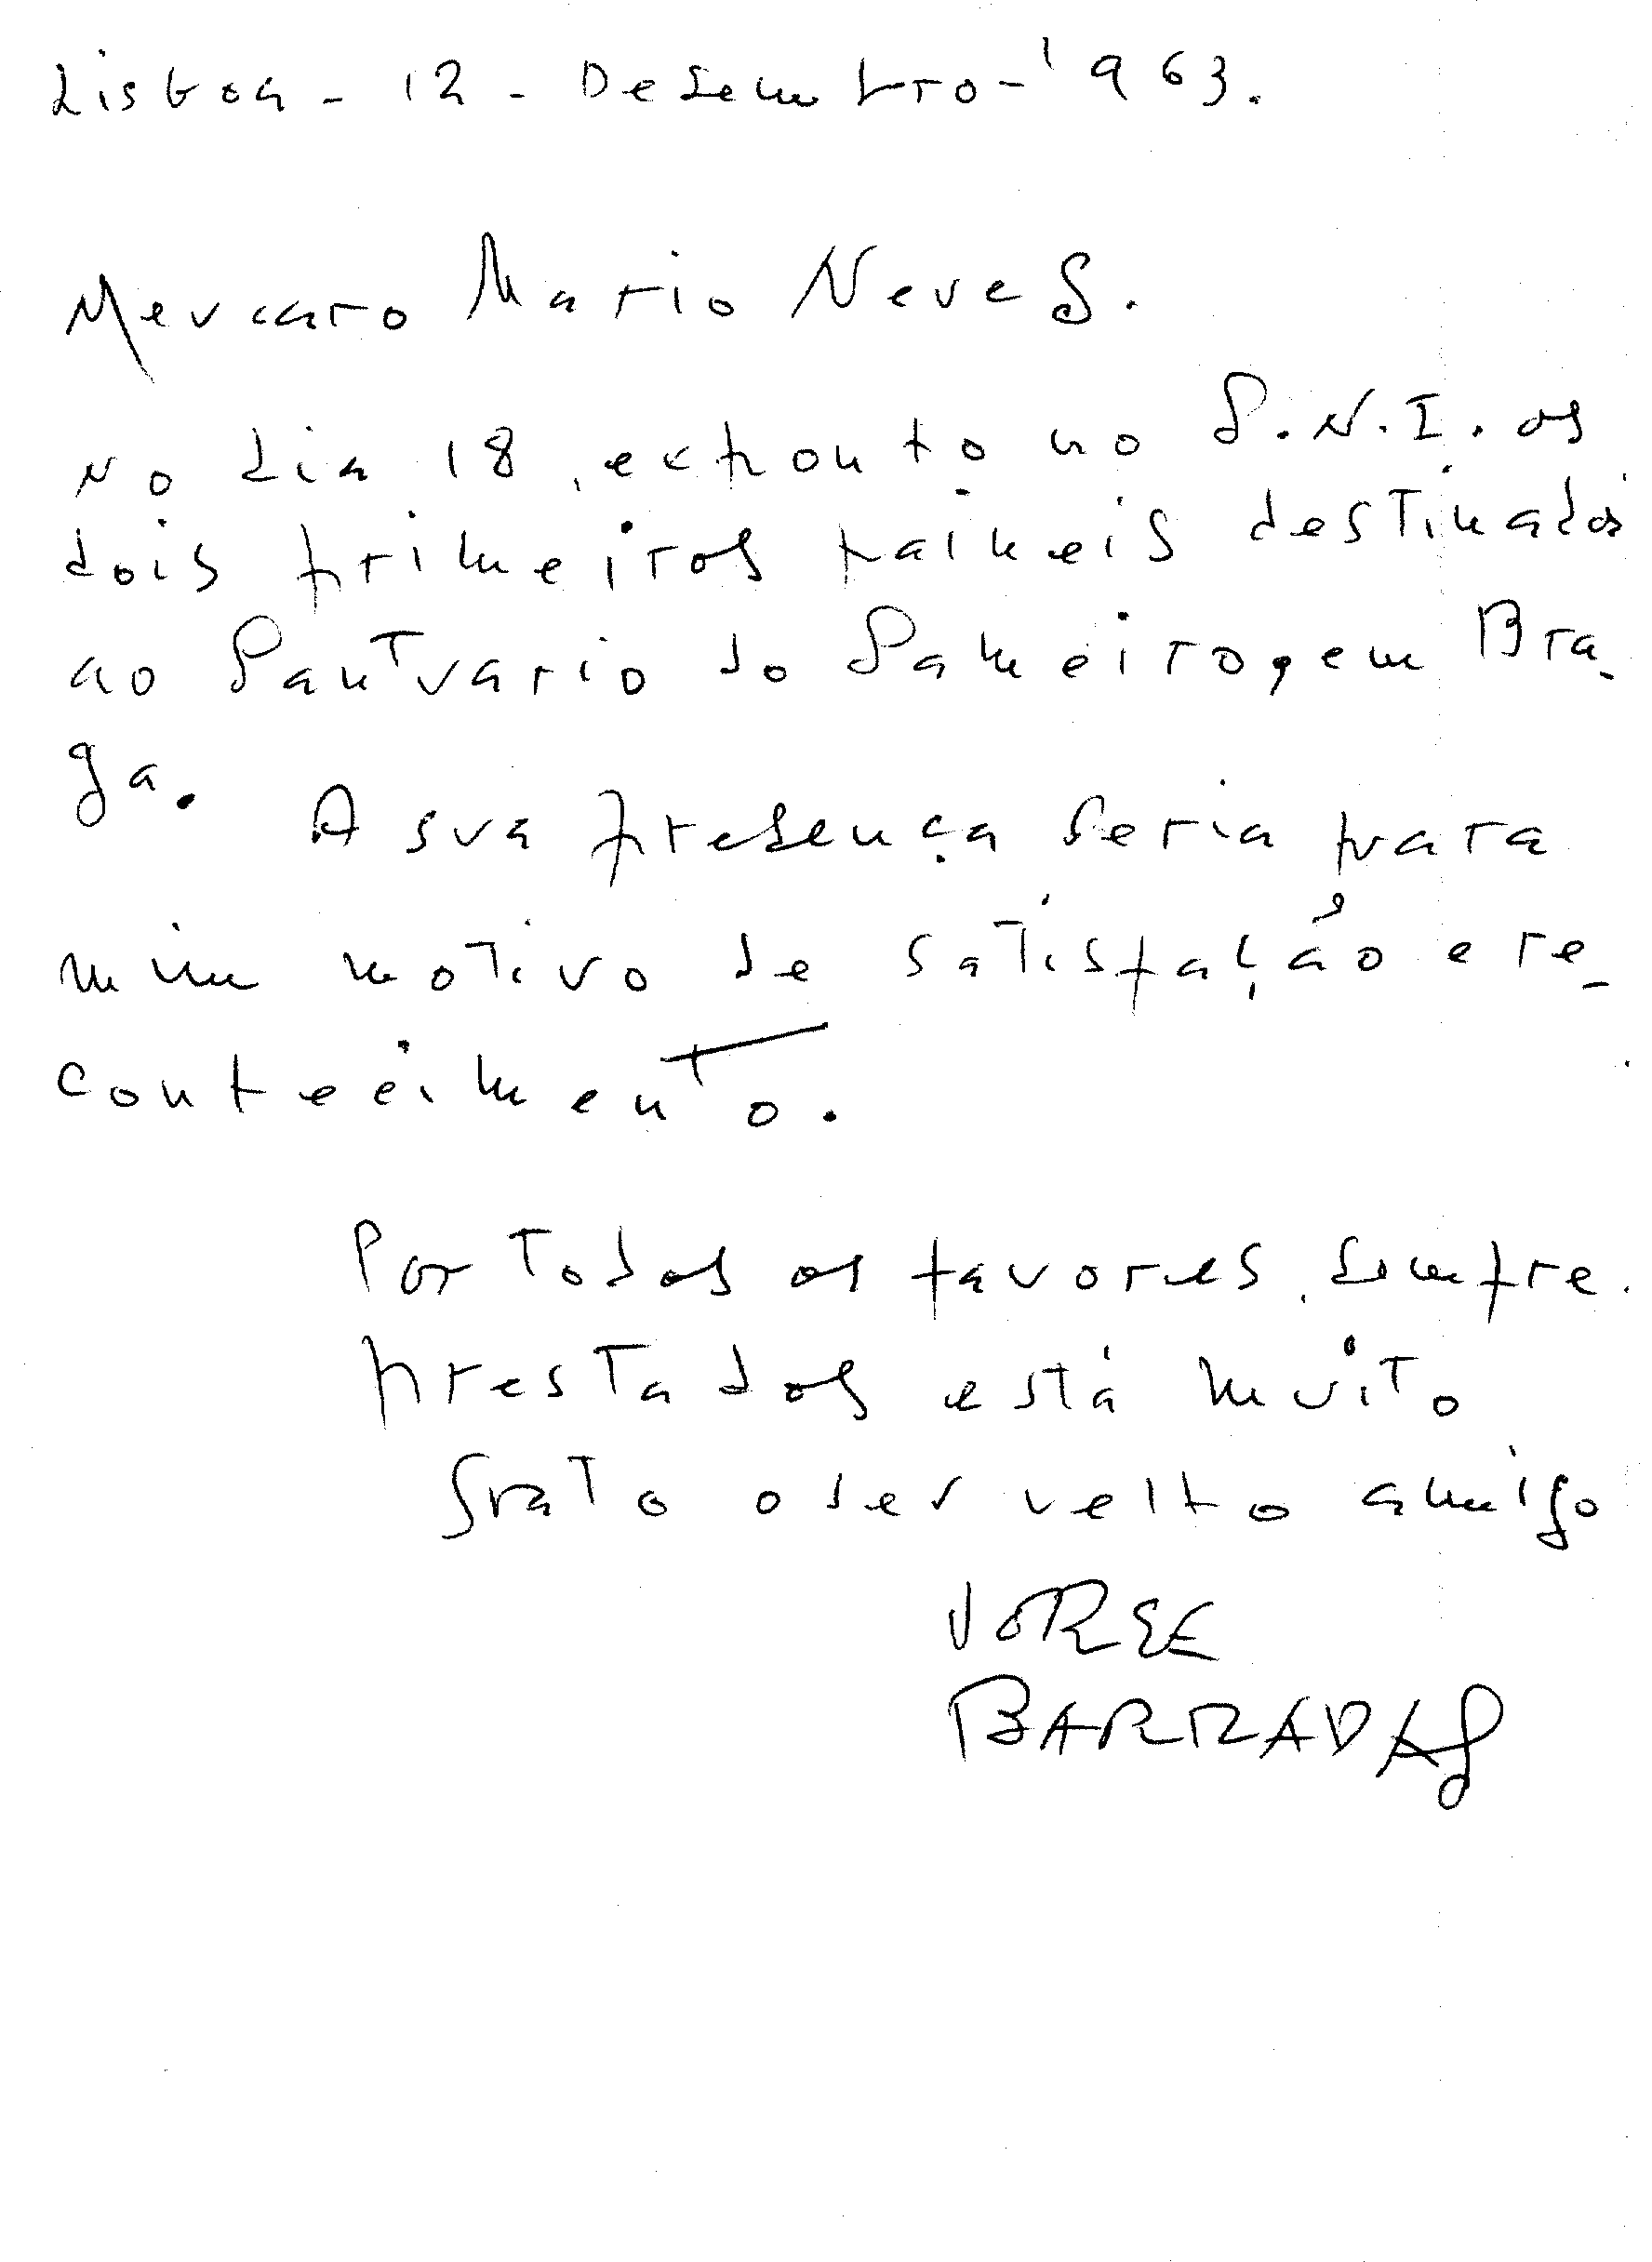 Lisboa - 12 - Desembro - 1963.
Meu caro Mario Neves.
No dia 18, exponho no S.N.I. os
dois primeiros paineis destinados
ao Santuario do Sameiro, em Bra-
ga. A sua presença seria para
mim motivo de satisfação e re-
conhecimento.
Por todos os favores, sempre
prestados está muito
grato o seu velho amigo
JORGE
BARRADAS